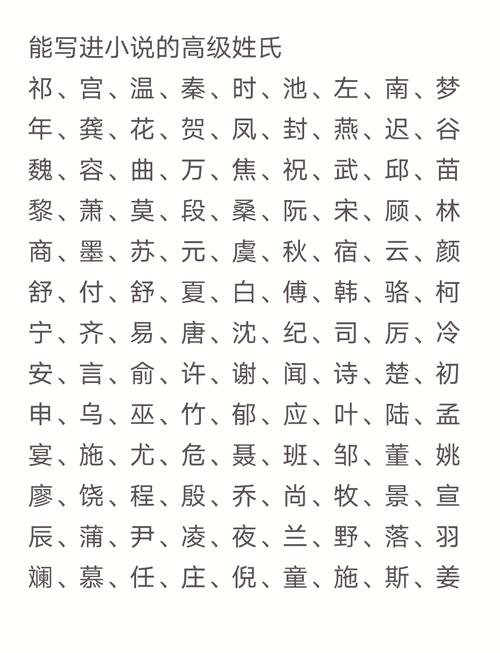 能写进小说的高级姓氏
祁、宫、温、秦、时、池、左、南、梦
年、龚、花、贺、凤、封、燕、迟、谷
魏、容、曲、万、焦、祝、武、邱、苗
黎、萧、莫、段、桑、阮、宋、顾、林
商、墨、苏、元、虞、秋、宿、云、颜
舒、付、舒、夏、白、傅、韩、骆、柯
宁、齐、易、唐、沈、纪、司、厉、冷
安、言、俞、许、谢、闻、诗、楚、初
申、乌、巫、竹、郁、应、叶、陆、孟
宴、施、尤、危、聂、班、邹、董、姚
廖、饶、程、殷、乔、尚、牧、景、宣
辰、蒲、尹、凌、夜、兰、野、落、羽
斓、慕、任、庄、倪、童、施、斯、姜